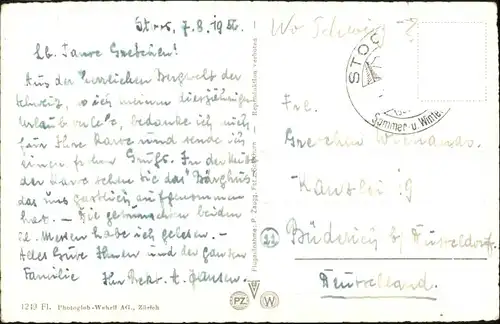 Stoos, 7.8.19
Lb. Gretchen!
Aus der herrlichen Bergwelt der
Schweiz, wo ich meinen diesjährigen
Urlaub verlebe, bedanke ich mich
für Ihre Karte und sende ich
einen frohen Gruß. In der Mitte
der Karte sehen Sie das "Berghus
das uns gastlich aufgenommen
hat. — Die gewünschten beiden
hl. Messen habe ich gelesen. —
Alles Gute Ihnen und der ganzen
Familie Ihr Rekt. A. Jansen.
1249 Fl. Photoglob-Wehrli AG., Zürich
Reproduktion verboten
PZ W
Wo Schweiz?
STOO
Sommer- u. Winter
Frl.
Gretchen
Kanzlei 9
Büderich b/ Düsseldorf.
Deutschland.